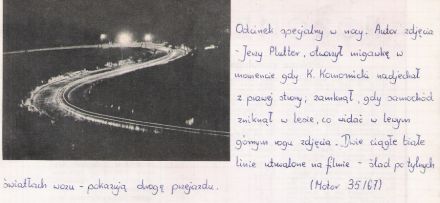 Odcinek specjalny w nocy. Autor zdjęcia
- Jerzy Plutter, otworzył migawkę w
momencie gdy K. Komornicki nadjechał
z prawej strony, zamknął, gdy samochód
zniknął w lesie, co widać w lewym
górnym rogu zdjęcia. Dwie ciągłe białe
linie utrwalone na filmie - ślad po tylnych
światłach wozu - pokazują drogę przejazdu.
(Motor 35/67)